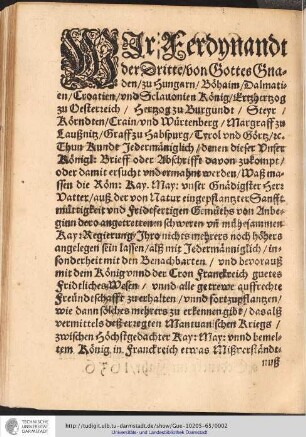 WIr Ferdynandt
der Dritte/von Gottes Gna-
den/zu Hungarn/Böhaim/Dalmati-
en/Croatien/vnd Sclauonien König/Ertzhertzog
zu Oesterreich/ Hertzog zu Burgundt/ Steyr/
Körndten/Crain/vnd Würtenberg/ Marggraff zu
Laußnitz/Graff zu Habspurg/Tyrol vnd Görtz/ꝛc.
Thun Kundt Jedermäniglich/denen dieser Vnser
Königl: Brieff oder Abschrifft davon zukompt/
oder damit ersucht vnd ermahnt werden/Waß mas-
sen die Röm: Kay: May: vnser Gnädigster Herr
Vatter/auß der von Natur eingepflantzter Sanfft-
mürtigkeit vnd Fridtfertigen Gemüths von Anbe-
ginn dero angetrettenen schweren vn̄ mühesammen
Kay: Regierung/Ihro nichts mehrers noch höhers
angelegen sein lassen/als mit Jedermänniglich/in-
sonderheit mit den Benachbarten / vnd bevorauß
mit dem König vnnd der Cron Franckreich guetes
Fridtliches Wesen/ vnnd alle getrewe auffrecht
Freündtschafft zuerhalten/vnnd fortzupflantzen/
wie dann solches mehrers zu erkennen gibt/das als
vermittels deß erregten Mantuanischen Kriegs/
zwischen Höchstgedachter Kay: May: vnnd bemel-
tem König in Franckreich etwas Mißverständt-
nuß
TECHNISCHE
UNIVERSITÄT
DARMSTADT
http://tudigit.ulb.tu-darmstadt.de/show/Gue-10205-65/0002
Universitäts- und Landesbibliothek Darmstadt